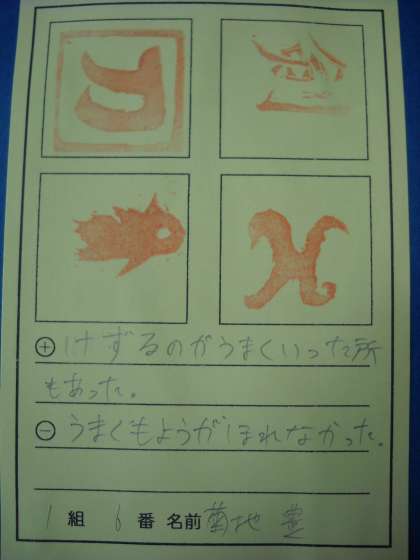 ⊕けずるのがうまくいった所
もあった。
⊖うまくもようがほれなかった。
1組 6番 名前 菊地 豊